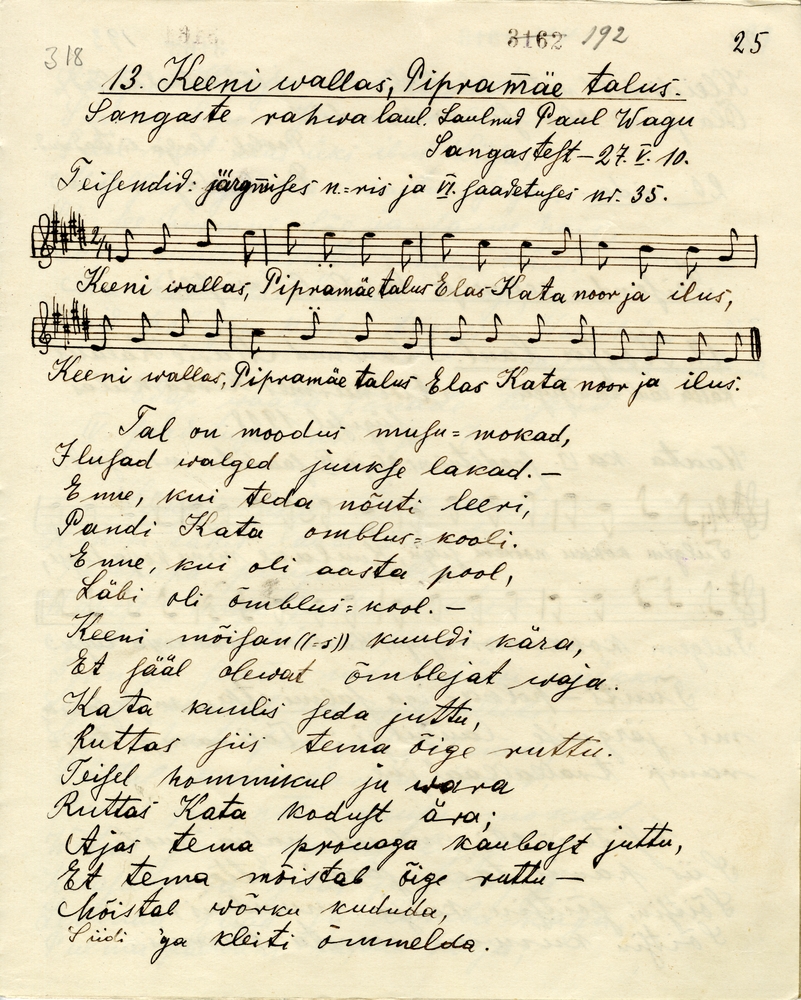 318 3162 192 25
13. Keeni wallas, Pipramäe talus.
Sangaste rahwalaul. Laulnud Paul Wagu
Sangastest – 27. V. 10.
Teisendid: järgmises n=ris ja VI saadetuses nr. 35.
2/4
Keeni wallas, Pipramäe talus Elas Kata noor ja ilus,
Keeni wallas, Pipramäe talus Elas Kata noor ja ilus.
Tal on moodus musu=mokad,
Ilusad walged juukse lakad. –
Enne, kui teda nõuti leeri,
Pandi Kata omblus=kooli.
Enne, kui oli aasta pool,
Läbi oli õmblus=kool. –
Keeni mõisan ((=s)) kuuldi kära,
Et sääl olewat õmblejat waja.
Kata kuulis seda juttu,
Ruttas siis tema õige ruttu.
Teisel hommikul ju wara
Ruttas Kata kodust ära;
Ajas tema prouaga kaubast juttu,
Et tema mõistab õige ruttu –
Mõistab wõrku kududa,
Siidi 'ga kleiti õmmelda.